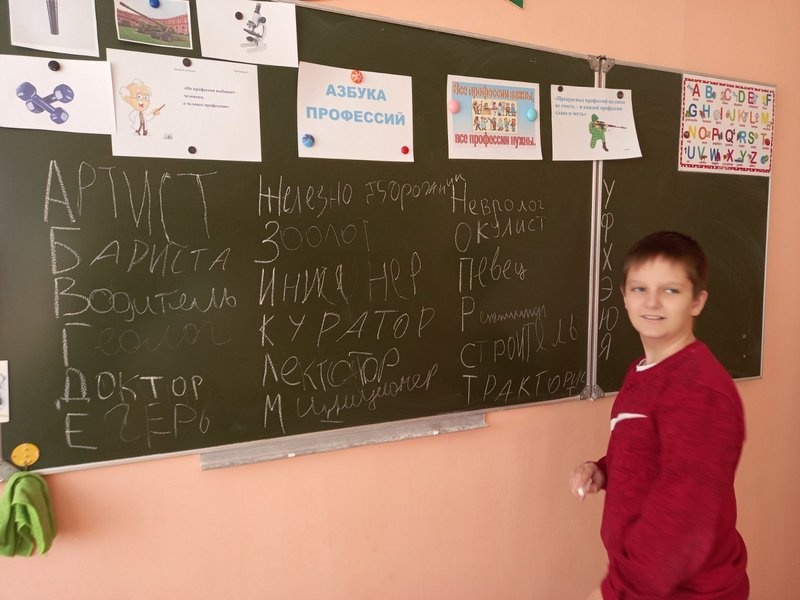 «Не профессия выбирает
человека,
а человек профессию»
АЗБУКА
ПРОФЕССИЙ
Все профессии важны,
все профессии нужны.
«Прекрасных профессий на свете
не счесть – и каждой профессии
слава и честь»
A B C D E F
G H I J K L M
N O P Q R S T
U V W X Y Z
АРТИСТ
БАРИСТА
Водитель
Геолог
ДОКТОР
ЕГЕРЬ
Железнодорожник
Зоолог
ИНЖЕНЕР
КУРАТОР
Лектор
Милиционер
Невролог
Окулист
Певец
Р
СТРОИТЕЛЬ
ТРАКТОРИС
У
Ф
Х
Э
Ю
Я